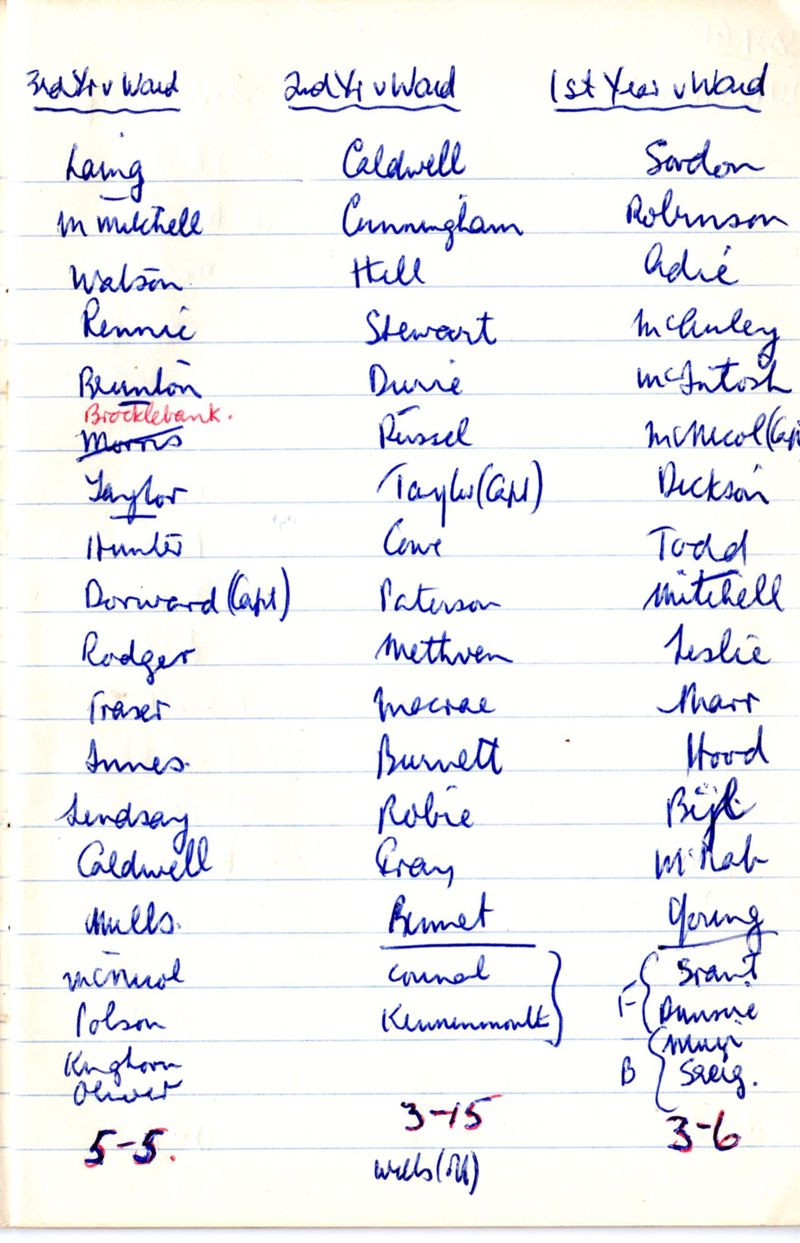 3rd Yr v Ward
Laing
M Mitchell
Watson
Rennie
Brunton
Brocklebank.
Morris
Taylor
Hunter
Dorward (Capt)
Rodger
Fraser
Innes.
Lindsay
Caldwell
Mills.
McNicol
Polson
Kinghorn
Oliver
5-5.
2nd Yr v Ward
Caldwell
Cunningham
Hill
Stewart
Durie
Russel
Taylor (Capt)
Cowe
Paterson
Methven
Macrae
Burnett
Robie
Gray
Bennet
Kenmenmoult
3-15
Wells
1st Year v Ward
Gordon
Robinson
Adie
McAuley
McIntosh
McNicol (Cap
Dickson
Todd
Mitchell
Leslie
Marr
Hood
Bijl
McNab
Young
F
Grant
B
Greig.
3-6